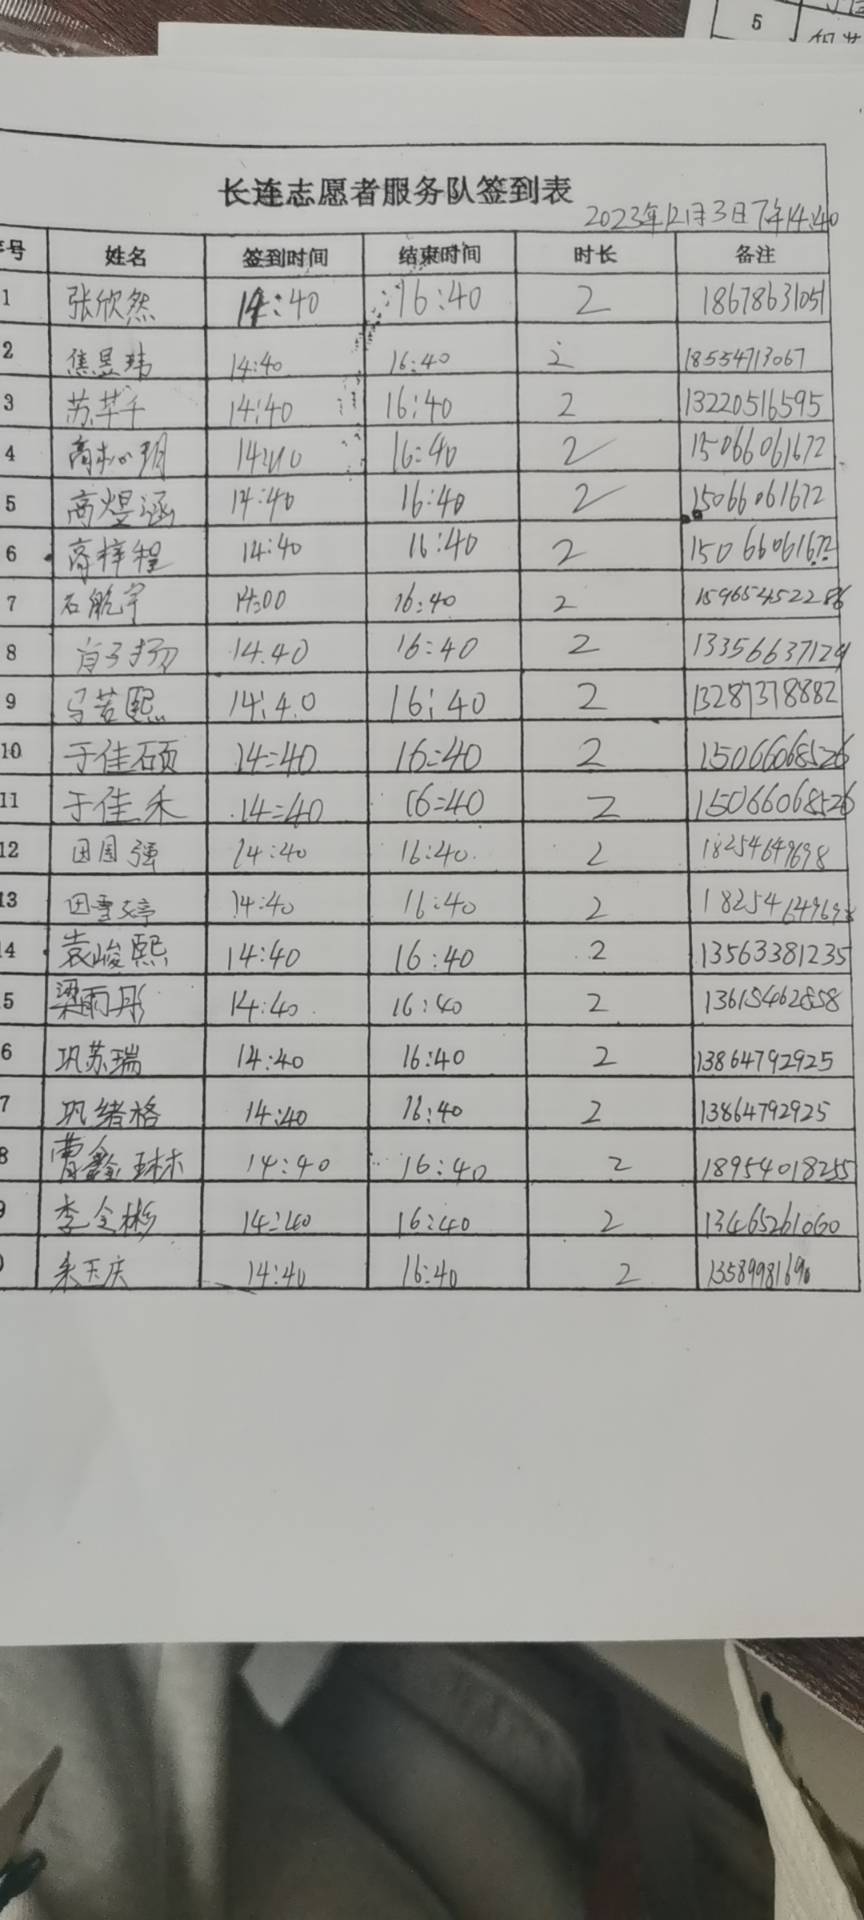 5
长连志愿者服务队签到表
2023年12月3日下午14:40
号 姓名 签到时间 结束时间 时长 备注
1 张欣然 14:40 16:40 2 18678631051
2 焦昱玮 14:40 16:40 2 18554713067
3 苏苹千 14:40 16:40 2 13220516595
4 高 玥 14:40 16:40 2 15066061672
5 高煜涵 14:40 16:40 2 15066061672
6 高梓程 14:40 16:40 2 15066061672
7 石航宇 14:00 16:40 2 15965452286
8 肖子扬 14.40 16:40 2 13356637129
9 马若熙 14:40 16:40 2 13287378882
10 于佳硕 14:40 16:40 2 15066068526
11 于佳禾 14:40 16:40 2 15066068526
12 田国强 14:40 16:40 2 18254649698
13 田雪婷 14:40 16:40 2 18254649698
4 袁峻熙 14:40 16:40 2 13563381235
5 梁雨彤 14:40 16:40 2 13615462858
6 巩苏瑞 14:40 16:40 2 13864792925
7 巩绪格 14:40 16:40 2 13864792925
8 曹鑫琳 14:40 16:40 2 18954018255
9 李全彬 14:40 16:40 2 13465261060
宋玉庆 14:40 16:40 2 13589981690